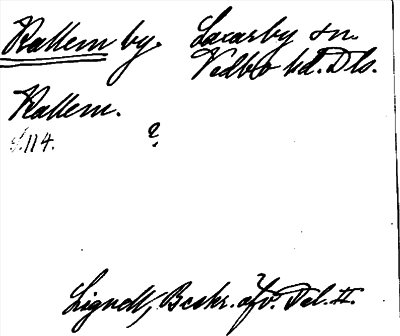 Rallem by. Laxarby sn.
Vedbo hd. Dls.
Rallem.
s. 114. ?
Lignell, Beskr. öfv. Dal. II.